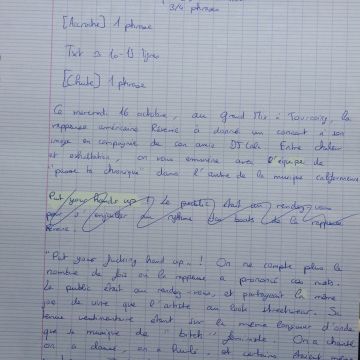 3/4 phrases
[Accroche] 1 phrase
Text 10-15 lignes
[Chute] 1 phrase
Ce mercredi 16 octobre, au Grand Mix à Tourcoing, la
rappeuse américaine Reverie a donné un concert à son
image en compagnie de son ami DJ Lala. Entre chaleur
et exaltation, on vous emmène avec l'équipe de
"passe ta chronique" dans l'antre de la musique californienne
Put your hands up ! Le public était au rendez-vous
pour s'enjailler au rythme des beats de la rappeuse
Reverie.
"Put your fucking hand up..! On ne compte plus le
nombre de fois où la rappeuse a prononcé ces mots.
Le public était au rendez-vous, et partageait la même
joie de vivre que l'artiste au look streetwear. Sa
tenue vestimentaire étant sur la même longueur d'onde
que sa musique de "bitch" féministe. On a chanté
on a dansé, on a hurlé et certains étaient même